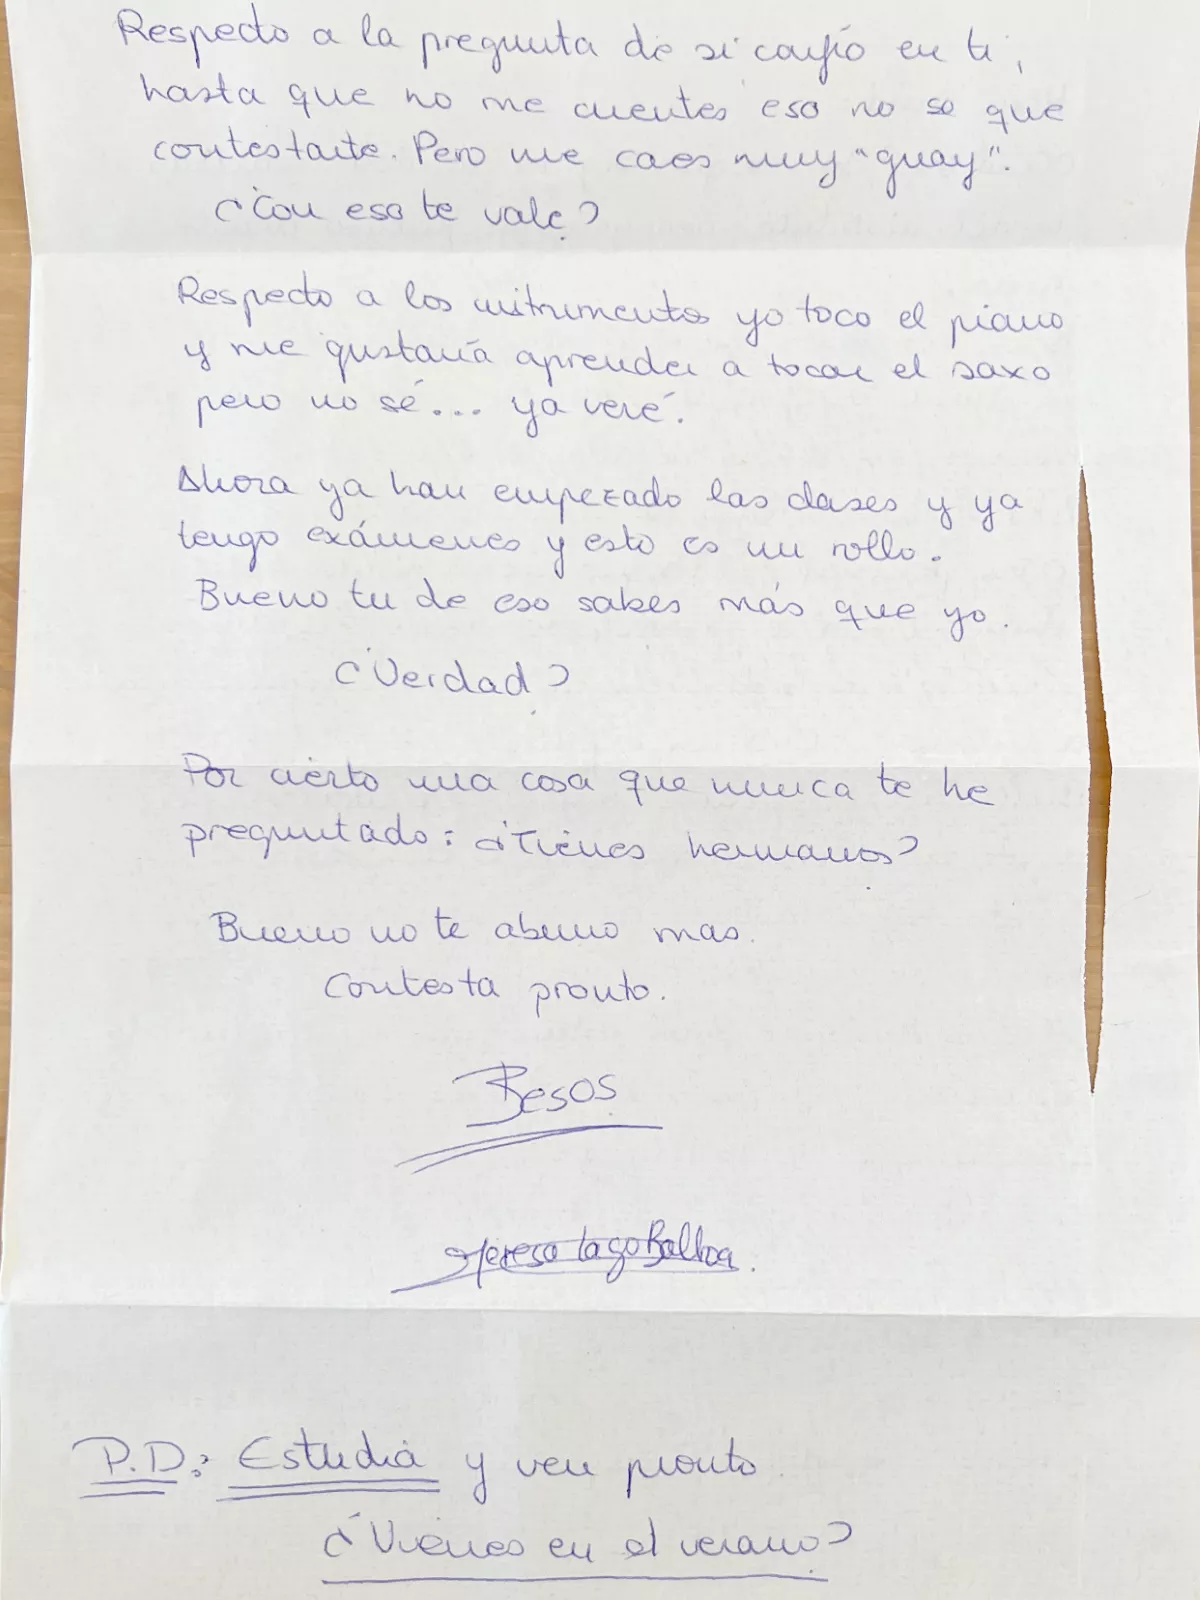 Respecto a la pregunta de si confío en ti,
hasta que no me cuentes eso no se que
contestarte. Pero me caes muy "guay".
¿Con eso te vale?
Respecto a los instrumentos yo toco el piano
y me gustaría aprender a tocar el saxo
pero no sé... ya veré.
Ahora ya han empezado las clases y ya
tengo exámenes y esto es un rollo.
Bueno tu de eso sabes más que yo.
¿Verdad?
Por cierto una cosa que nunca te he
preguntado: ¿Tienes hermanos?
Bueno no te aburro mas.
Contesta pronto.
Besos
Teresa Lago Balboa.
P.D: Estudia y ven pronto
¿Vienes en el verano?